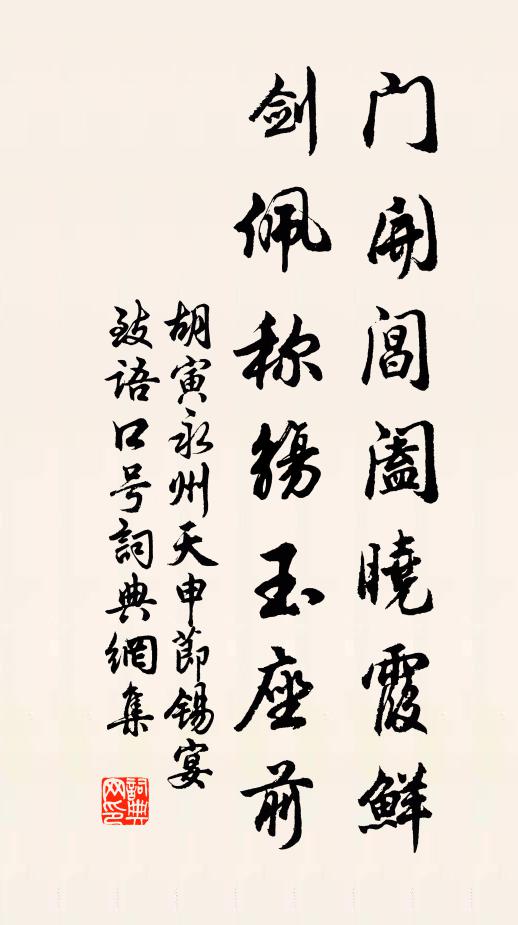 门开阊阖曉霞鮮
剑佩称觴玉座前
胡寅永州天申節锡宴
致语口号詞典網集
詞典网印